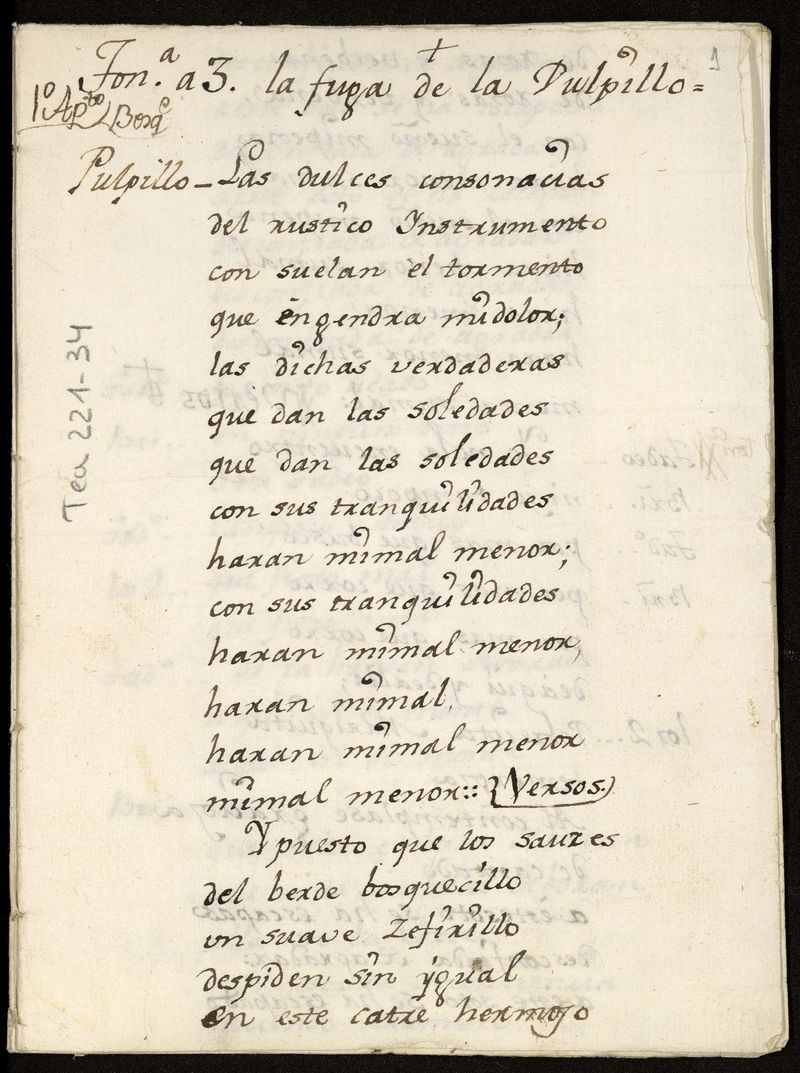 +
1
Ton.ª a 3. la fuga de la Pulpillo=
1º Apto Bosqe
Pulpillo - Las dulces consonacias
del rustico Instrumento
con suelan el tormento
que engendra midolor;
las dichas verdaderas
que dan las soledades
que dan las soledades
con sus tranquilidades
haran mimal menor;
con sus tranquilidades
haran mimal menor,
haran mimal,
haran mimal menor
mimal menor:: {Versos.)
Ypuesto que los sauzes
del berde bosquecillo
un suave Zefirillo
despiden sin ygual
en este catre hermoso
Tea 221-34